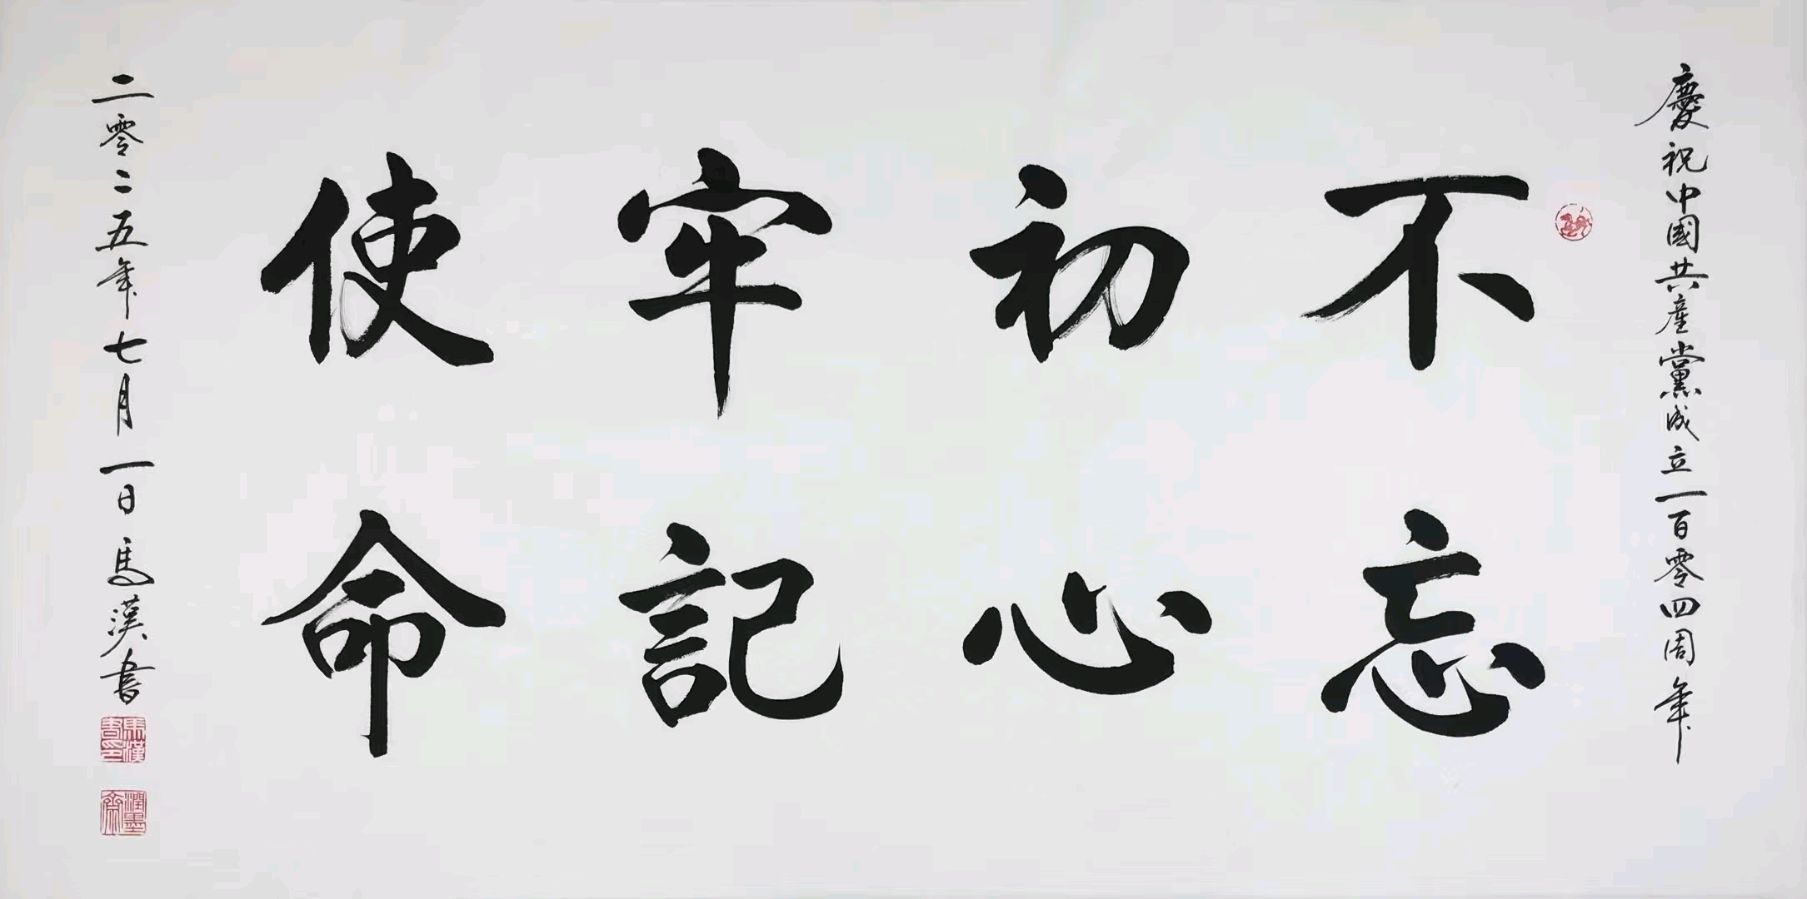 慶祝中國共產黨成立一百零四周年
不忘
初心
牢記
使命
二零二五年七月一日馬漢書
馬漢書印
潤墨齋